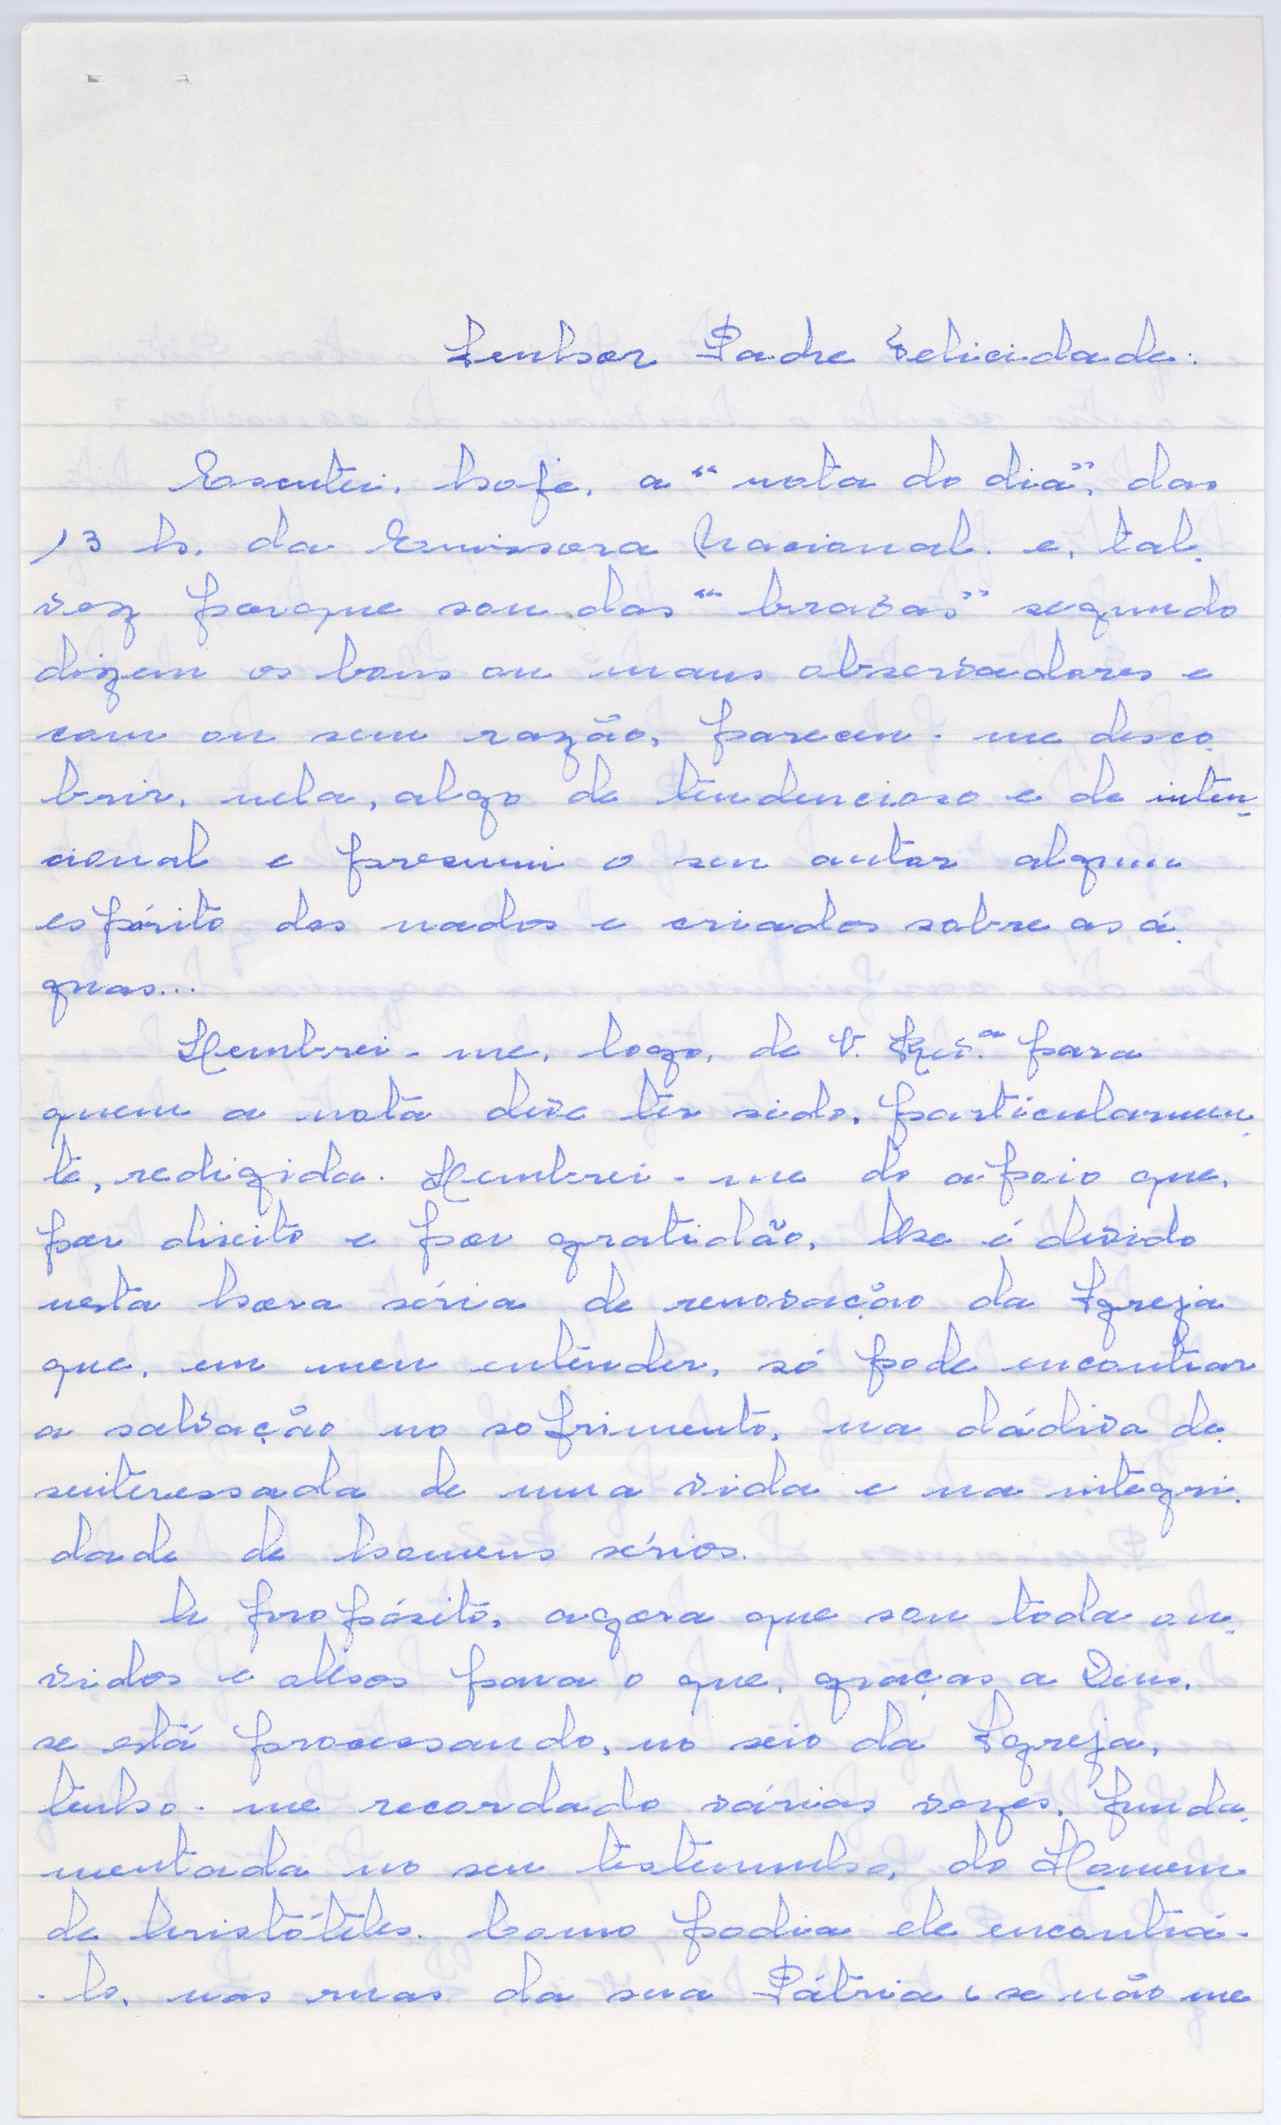 Senhor Padre Felicidade:
Escutei, hoje, a "nota do dia", das
13 h. da Emissora Nacional. e, tal-
vez porque sou das "bravas" segundo
dizem os bons ou maus observadores e
com ou sem razão, pareceu-me desco-
brir, nela, algo de tendencioso e de inten-
cional e presumi o seu autor algum
espírito dos nados e criados sobre as á-
guas...
Lembrei-me, logo, de V. Rev.ª para
quem a nota deve ter sido, particularmen-
te, redigida. Lembrei-me do apoio que,
por direito e por gratidão, lhe é devido
nesta hora séria de renovação da Igreja
que, em meu entender, só pode encontrar
a salvação no sofrimento, na dádiva de-
sinteressada de uma vida e na integri-
dade de homens sérios.
A propósito, agora que sou toda ou-
vidos e olhos para o que, graças a Deus,
se está processando, no seio da Igreja,
tenho-me recordado várias vezes, funda-
mentada no seu testemunho, do Homem
de Aristóteles. Como podia ele encontrá-
-lo, nas ruas da sua Pátria, se não me